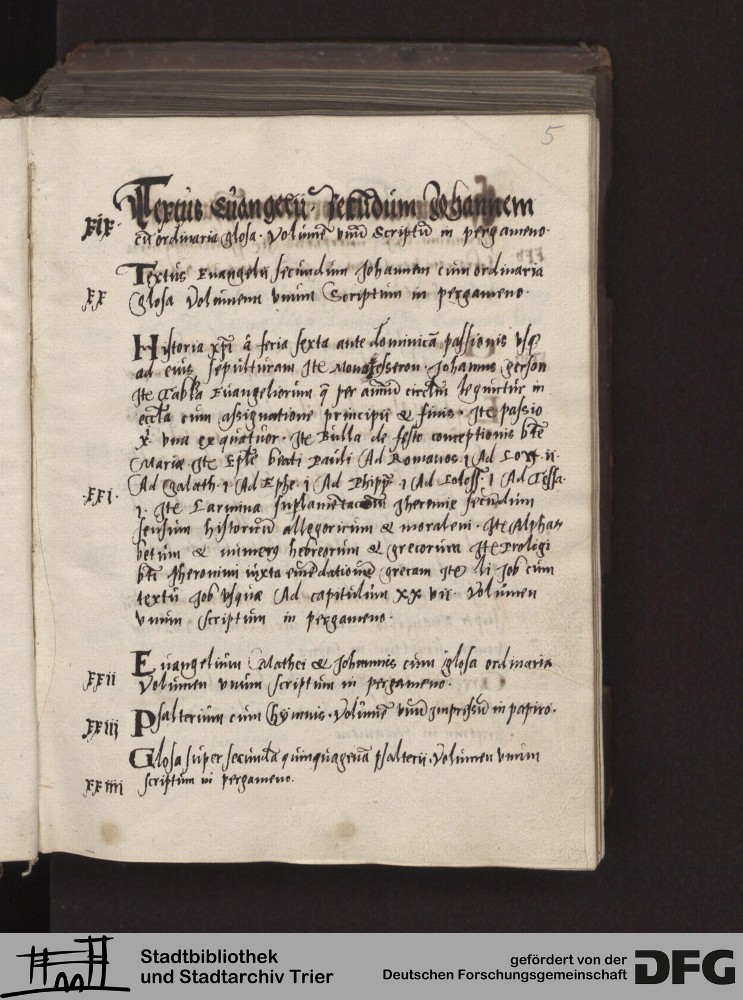 5
Textus Euangelij secūdum Johannem
XIX cū ordinaria glosa. Volumē vnū Scriptū in pergameno.
Textus Euangelii secundum Johannem cum ordinaria
XX glosa Volumen vnum Scriptum in pergameno.
Historia xp̄i a feria sexta ante dominicā passionis vsq̄
ad eius sepulturam Itē Johannis Gerson
Itē Tabula Euangeliorum q̄ per annū leguntur in
eccl̄a cum assignatione principii & finis. Itē passio
x̄ vna ex quatuor. Itē Bulla de festo conceptionis btē
Marie Itē Ep̄lē beati Pauli Ad Romanos 1 Ad Cor. ii.
Ad Galath. 1 Ad Ephe. 1 Ad Phipp̄. 1 Ad Coloss. 1 Ad Tessa.
.XXI. 1. Itē Carmina Jheremie secundum
sensum historicū allegoricum & moralem. Itē Alpha
betum & numerus hebreorum & grecorum Itē Prologi
bti Jheronimi iuxta emēdationē grecam Itē li Job cum
textu Job vsque Ad capitulum XXVII. Volumen
vnum scriptum in pergameno.
Euangelium Mathei & Johannis cum glosa ordinaria
XXII Volumen vnum scriptum in pergameno.
XXIII Psalterium cum Hymnis. Volumē vnū Impressū in papiro.
Glosa super secunda quinquagena psalterii. Volumen vnum
XXIIII scriptum in pergameno.
Stadtbibliothek
und Stadtarchiv Trier
gefördert von der
Deutschen Forschungsgemeinschaft
DFG